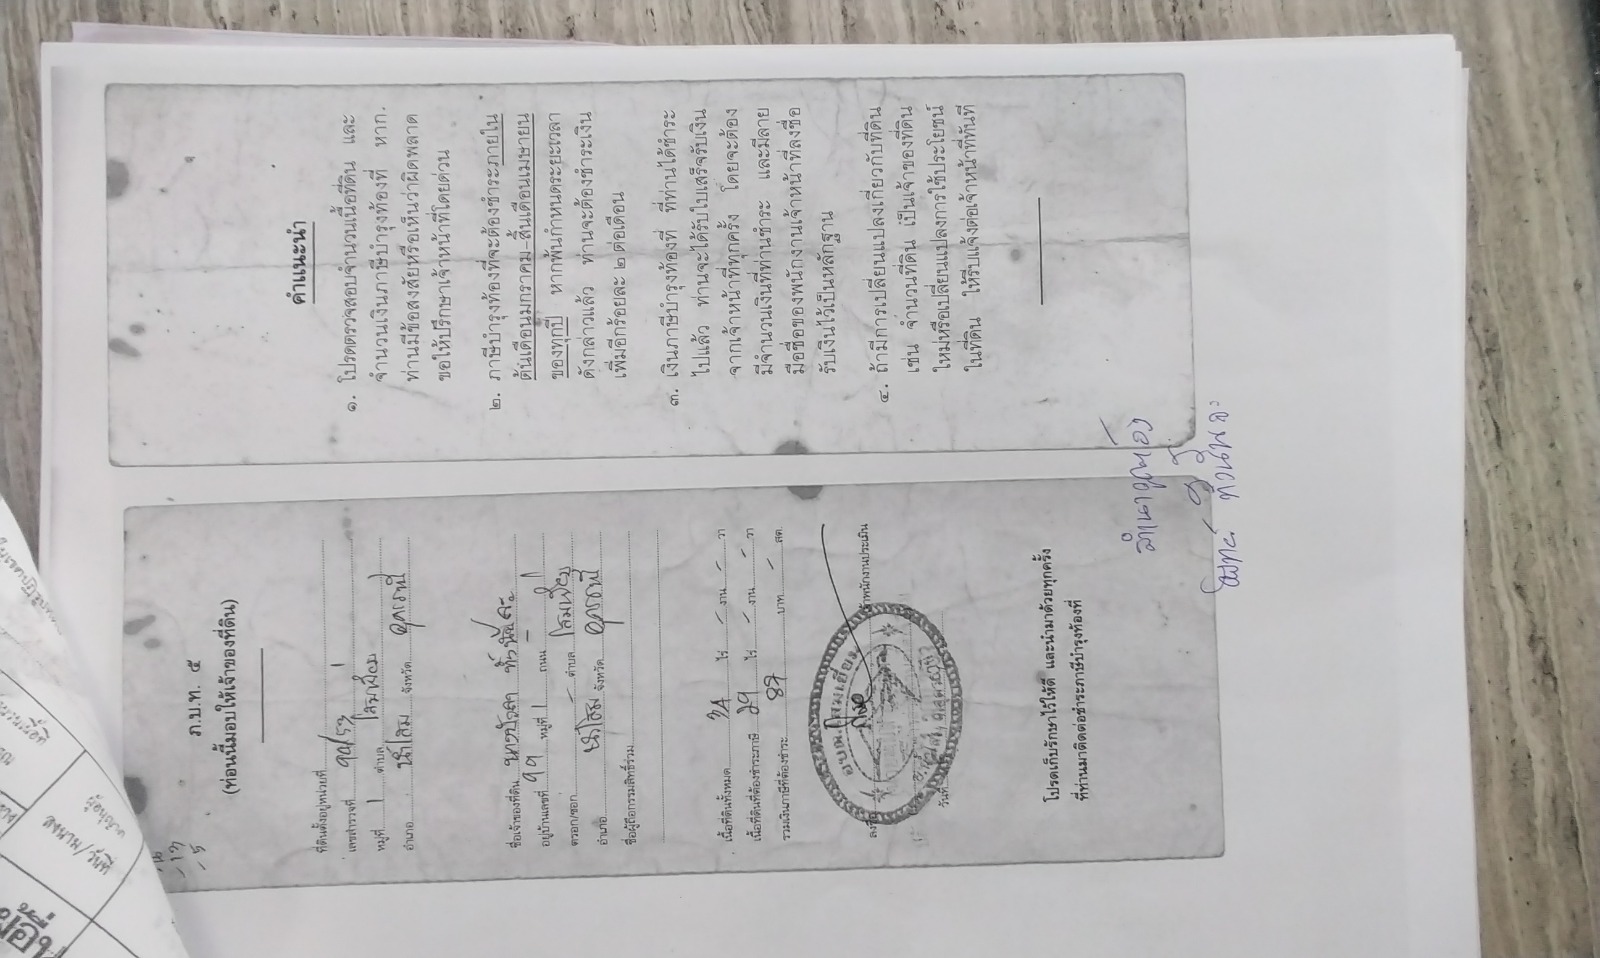 ภ.บ.ท. ๕
(ท่อนนี้มอบให้เจ้าของที่ดิน)
ที่ดินตั้งอยู่หน่วยที่
เลขสำรวจที่
หมู่ที่ 1 ตำบล โสมเยี่ยม
อำเภอ น้ำโสม จังหวัด อุดรธานี
ชื่อเจ้าของที่ดิน
อยู่บ้านเลขที่ ๑๑ หมู่ที่ 1 ถนน -
ตรอก/ซอก - ตำบล โสมเยี่ยม
อำเภอ น้ำโสม จังหวัด อุดรธานี
ชื่อผู้ถือกรรมสิทธิ์ร่วม
เนื้อที่ดินทั้งหมด ไร่ - งาน - วา
เนื้อที่ดินที่ต้องชำระภาษี ไร่ - งาน - วา
รวมเงินภาษีที่ต้องชำระ บาท - สต.
อบต.โสมเยี่ยม
ลงชื่อ เจ้าพนักงานประเมิน
วันที่
โปรดเก็บรักษาไว้ให้ดี และนำมาด้วยทุกครั้ง
ที่ท่านมาติดต่อชำระภาษีบำรุงท้องที่
คำแนะนำ
๑. โปรดตรวจสอบจำนวนเนื้อที่ดิน และ
จำนวนเงินภาษีบำรุงท้องที่ หาก
ท่านมีข้อสงสัยหรือเห็นว่าผิดพลาด
ขอให้ปรึกษาเจ้าหน้าที่โดยด่วน
๒. ภาษีบำรุงท้องที่จะต้องชำระภายใน
ต้นเดือนมกราคม-สิ้นเดือนเมษายน
ของทุกปี หากพ้นกำหนดระยะเวลา
ดังกล่าวแล้ว ท่านจะต้องชำระเงิน
เพิ่มอีกร้อยละ ๒ ต่อเดือน
๓. เงินภาษีบำรุงท้องที่ ที่ท่านได้ชำระ
ไปแล้ว ท่านจะได้รับใบเสร็จรับเงิน
จากเจ้าหน้าที่ทุกครั้ง โดยจะต้อง
มีจำนวนเงินที่ท่านชำระ และมีลาย
มือชื่อของพนักงานเจ้าหน้าที่ลงชื่อ
รับเงินไว้เป็นหลักฐาน
๔. ถ้ามีการเปลี่ยนแปลงเกี่ยวกับที่ดิน
เช่น จำนวนที่ดิน เป็นเจ้าของที่ดิน
ใหม่หรือเปลี่ยนแปลงการใช้ประโยชน์
ในที่ดิน ให้รีบแจ้งต่อเจ้าหน้าที่ทันที
สำเนาถูกต้อง